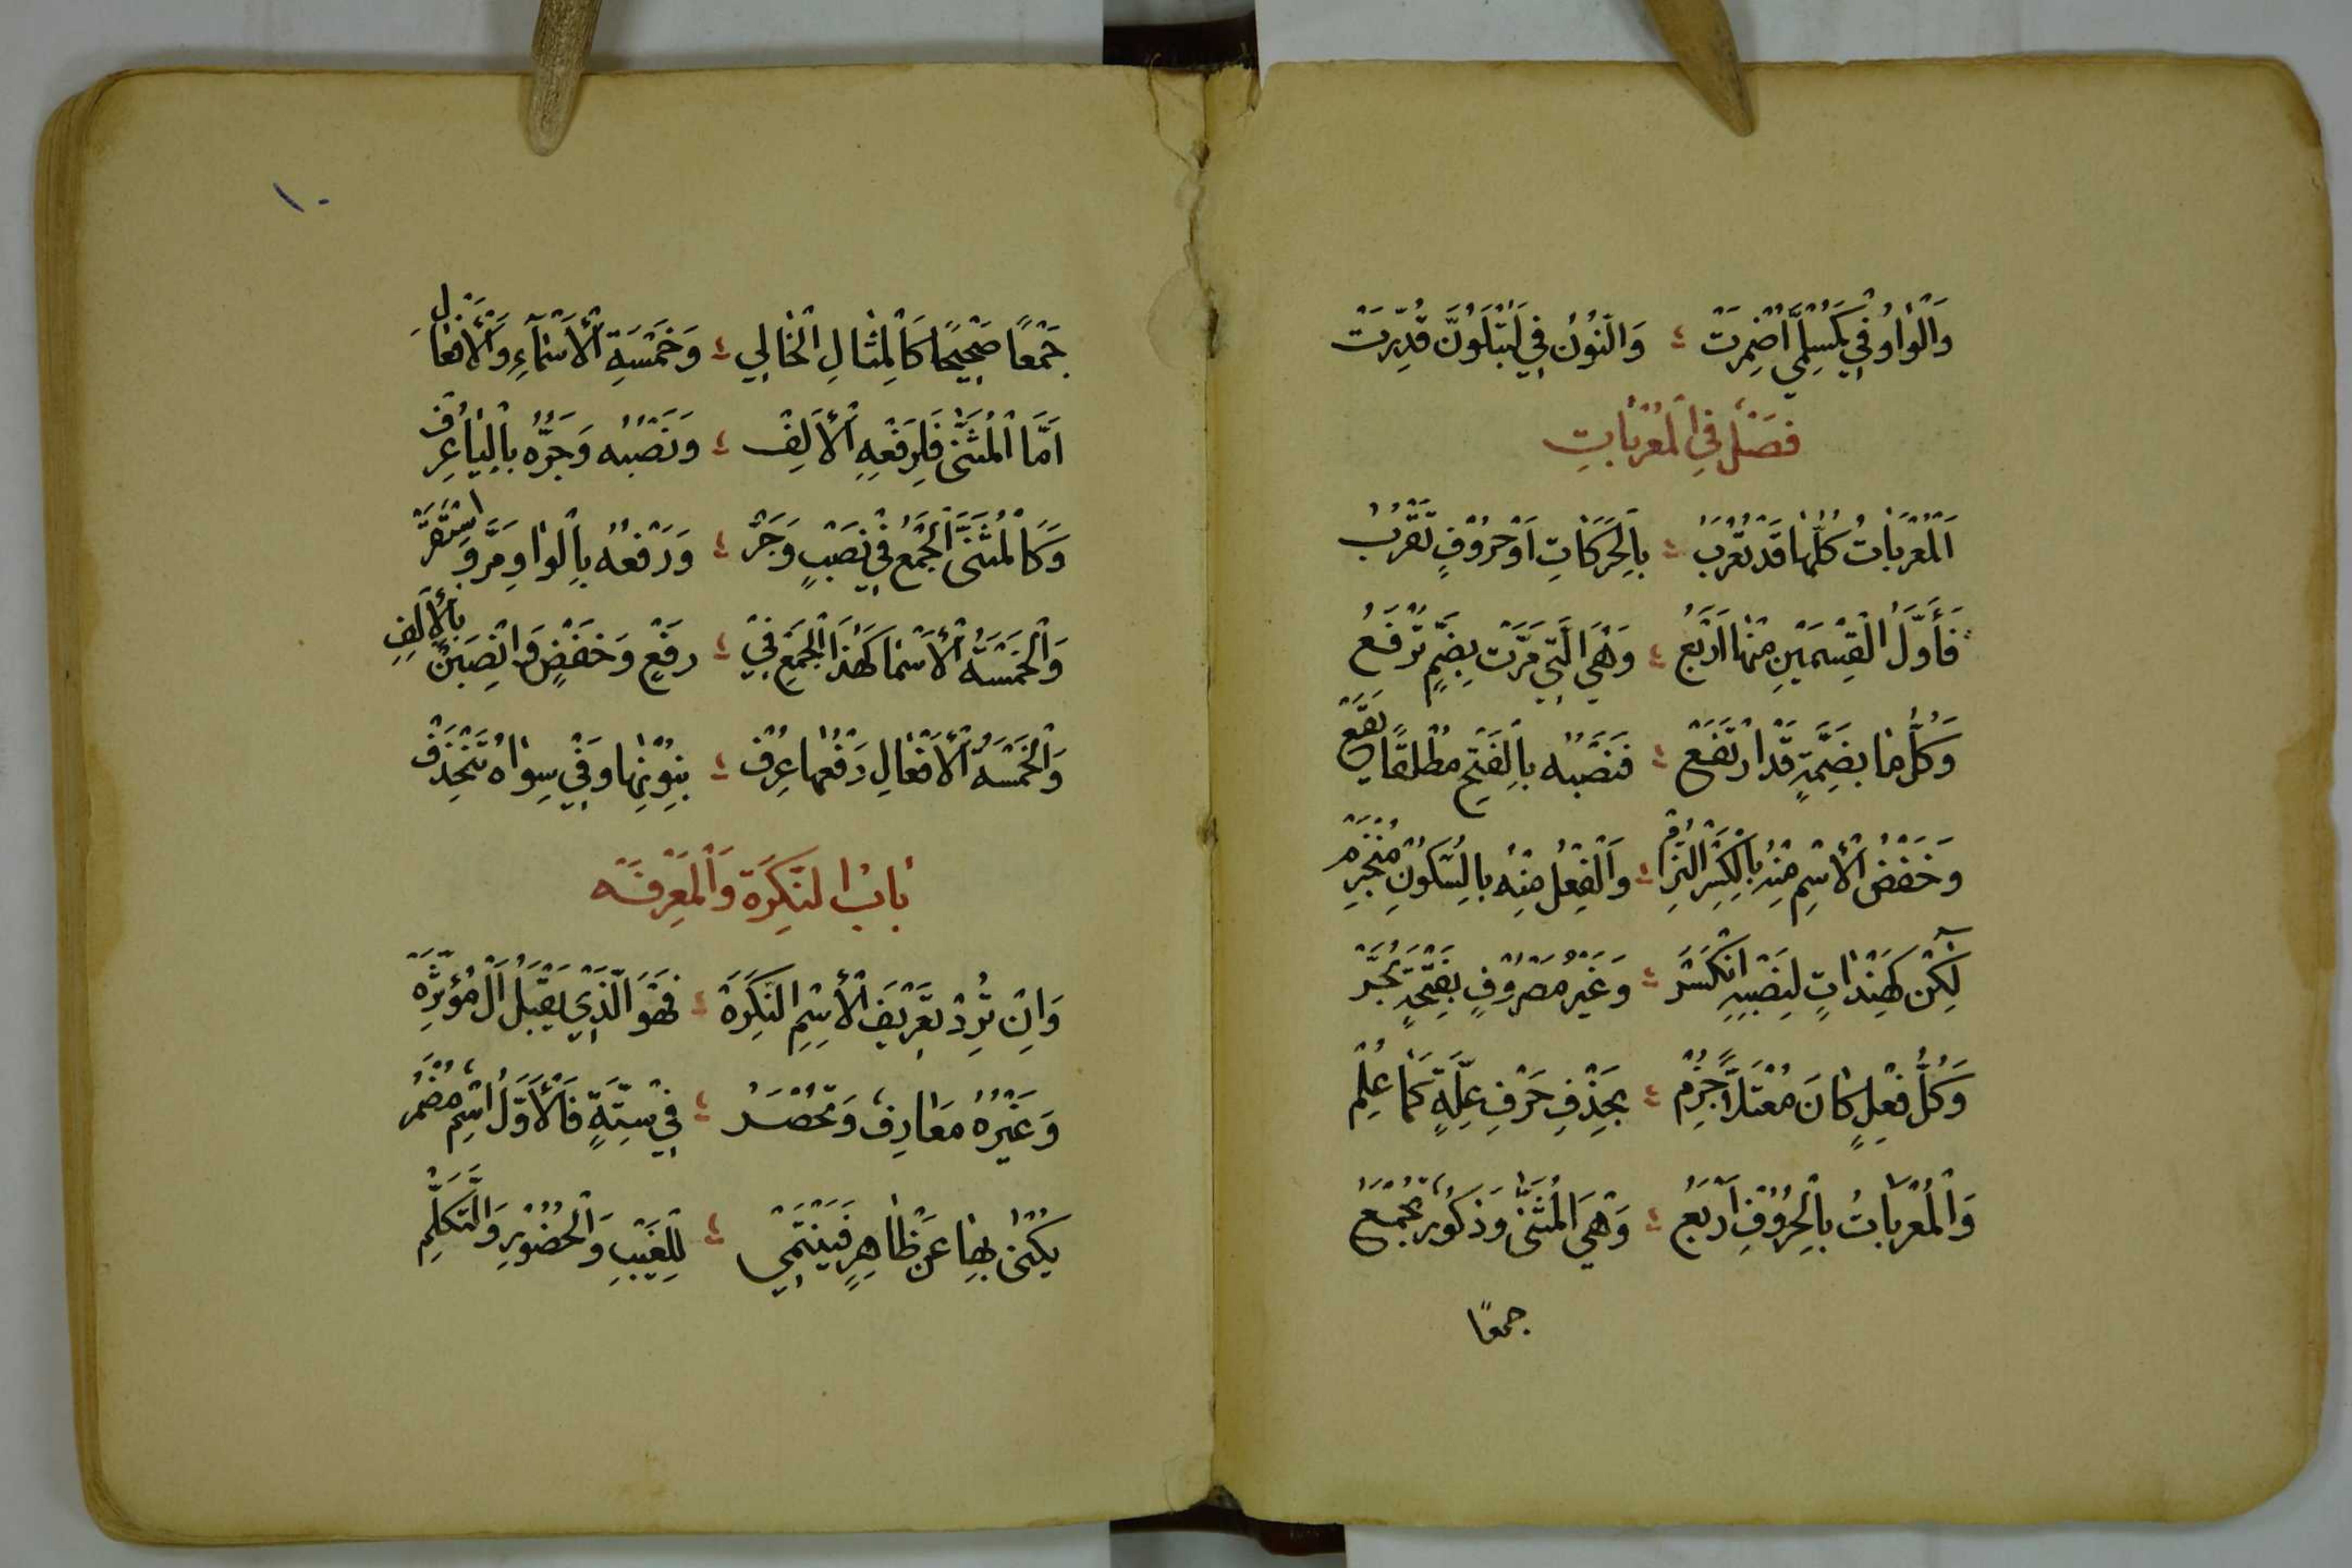 وَالْوَاوُ فِي كَمُسْلِمِيَّ أُضْمِرَتْ ؛ وَالنُّونُ فِي لَتُبْلَوُنَّ قُدِّرَتْ
فَصْلٌ فِي الْمُعْرَبَاتِ
اَلْمُعْرَبَاتُ كُلُّهَا قَدْ تُعْرَبُ ؛ بِالْحَرَكَاتِ اَوْ حُرُوفٍ تَقْرُبُ
فَأَوَّلُ الْقِسْمَيْنِ مِنْهَا اَرْبَعُ ؛ وَهْيَ الَّتِي مَرَّتْ بِضَمٍّ تُرْفَعُ
وَكُلُّ مَا بِضَمَّةٍ قَدِ ارْتَفَعْ ؛ فَنَصْبُهُ بِالْفَتْحِ مُطْلَقًا يَقَعْ
وَخَفْضُ الْأِسْمِ مِنْهُ بِالْكَسْرِ الْتُزِمْ ؛ وَالْفِعْلُ مِنْهُ بِالسُّكُونِ مُنْجَزِمْ
لَكِنْ كَهِنْدَاتٍ لِنَصْبِهِ انْكَسَرْ ؛ وَغَيْرُ مَصْرُوفٍ بِفَتْحَةٍ تُجَرّْ
وَكُلُّ فِعْلٍ كَانَ مُعْتَلًّا جُزِمْ ؛ بِحَذْفِ حَرْفِ عِلَّةٍ كَمَا عُلِمْ
وَالْمُعْرَبَاتُ بِالْحُرُوفِ اَرْبَعُ ؛ وَهْيَ الْمُثَنَّى وَذُكُورٌ تُجْمَعُ
جمعًا
١٠
جَمْعًا صَحِيحًا كَالْمِثَالِ الْخَالِي ؛ وَخَمْسَةِ الْأَسْمَآءِ وَالْأَفْعَالِ
اَمَّا الْمُثَنَّى فَلِرَفْعِهِ الْأَلِفْ ؛ وَنَصْبُهُ وَجَرُّهُ بِالْيَا عُرِفْ
وَكَالْمُثَنَّى الْجَمْعُ فِي نَصْبٍ وَجَرّْ ؛ وَرَفْعُهُ بِالْوَاوِ مَرَّ وَاسْتَقَرّْ
وَالْخَمْسَةُ الْأَسْمَا كَهَذَا الْجَمْعِ فِي ؛ رَفْعٍ وَخَفْضٍ وَانْصِبَنْ بِالْأَلِفِ
وَالْخَمْسَةُ الْأَفْعَالِ رَفْعُهَا عُرِفْ ؛ بِنُونِهَا وَفِي سِوَاهُ تَنْحَذِفْ
بَابُ النَّكِرَةِ وَالْمَعْرِفَهْ
وَاِنْ تُرِدْ تَعْرِيفَ الْأِسْمِ النَّكِرَهْ ؛ فَهْوَ الَّذِي يَقْبَلُ اَلْ مُؤَثِّرَهْ
وَغَيْرُهُ مَعَارِفٌ وَتُحْصَرُ ؛ فِي سِتَّةٍ فَالْأَوَّلُ اسْمٌ مُضْمَرُ
يُكْنَى بِهَا عَنْ ظَاهِرٍ فَيَنْتَمِي ؛ لِلْغَيْبِ وَالْحُضُورِ وَالتَّكَلُّمِ